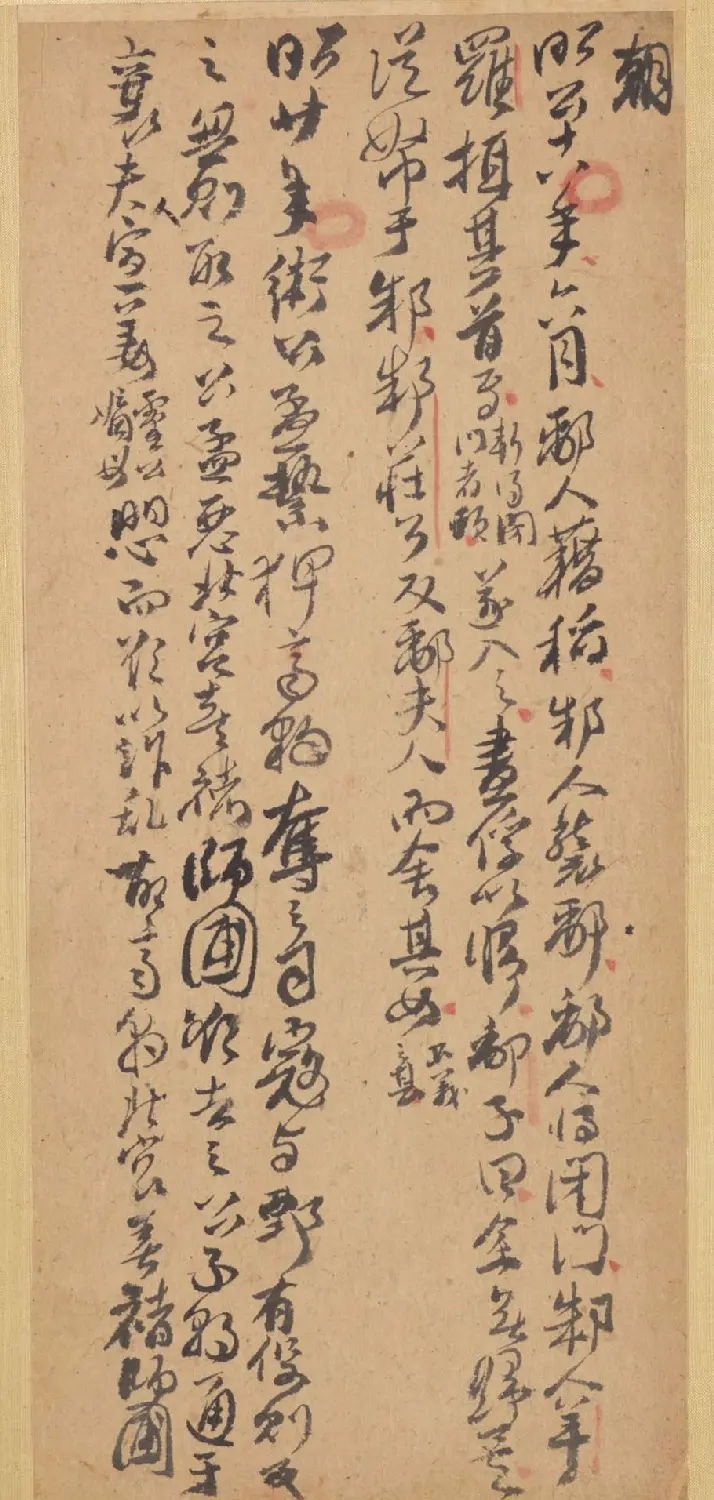 朝
昭公十八年六月鄅人藉稻邾人襲鄅鄅人將閉門邾人羊
羅攝其首焉斬得閉門者頭遂入之盡俘以歸鄅子曰余無歸矣
從帑于邾邾莊公反鄅夫人而舍其女
昭廿年衛公孟縶狎齊豹奪之司寇与鄄有役則反
之無則取之公孟惡北宮喜褚師圃欲去之公子朝通于
襄夫人宣姜靈公嫡母懼而欲以作乱故齊豹北宮喜褚師圃